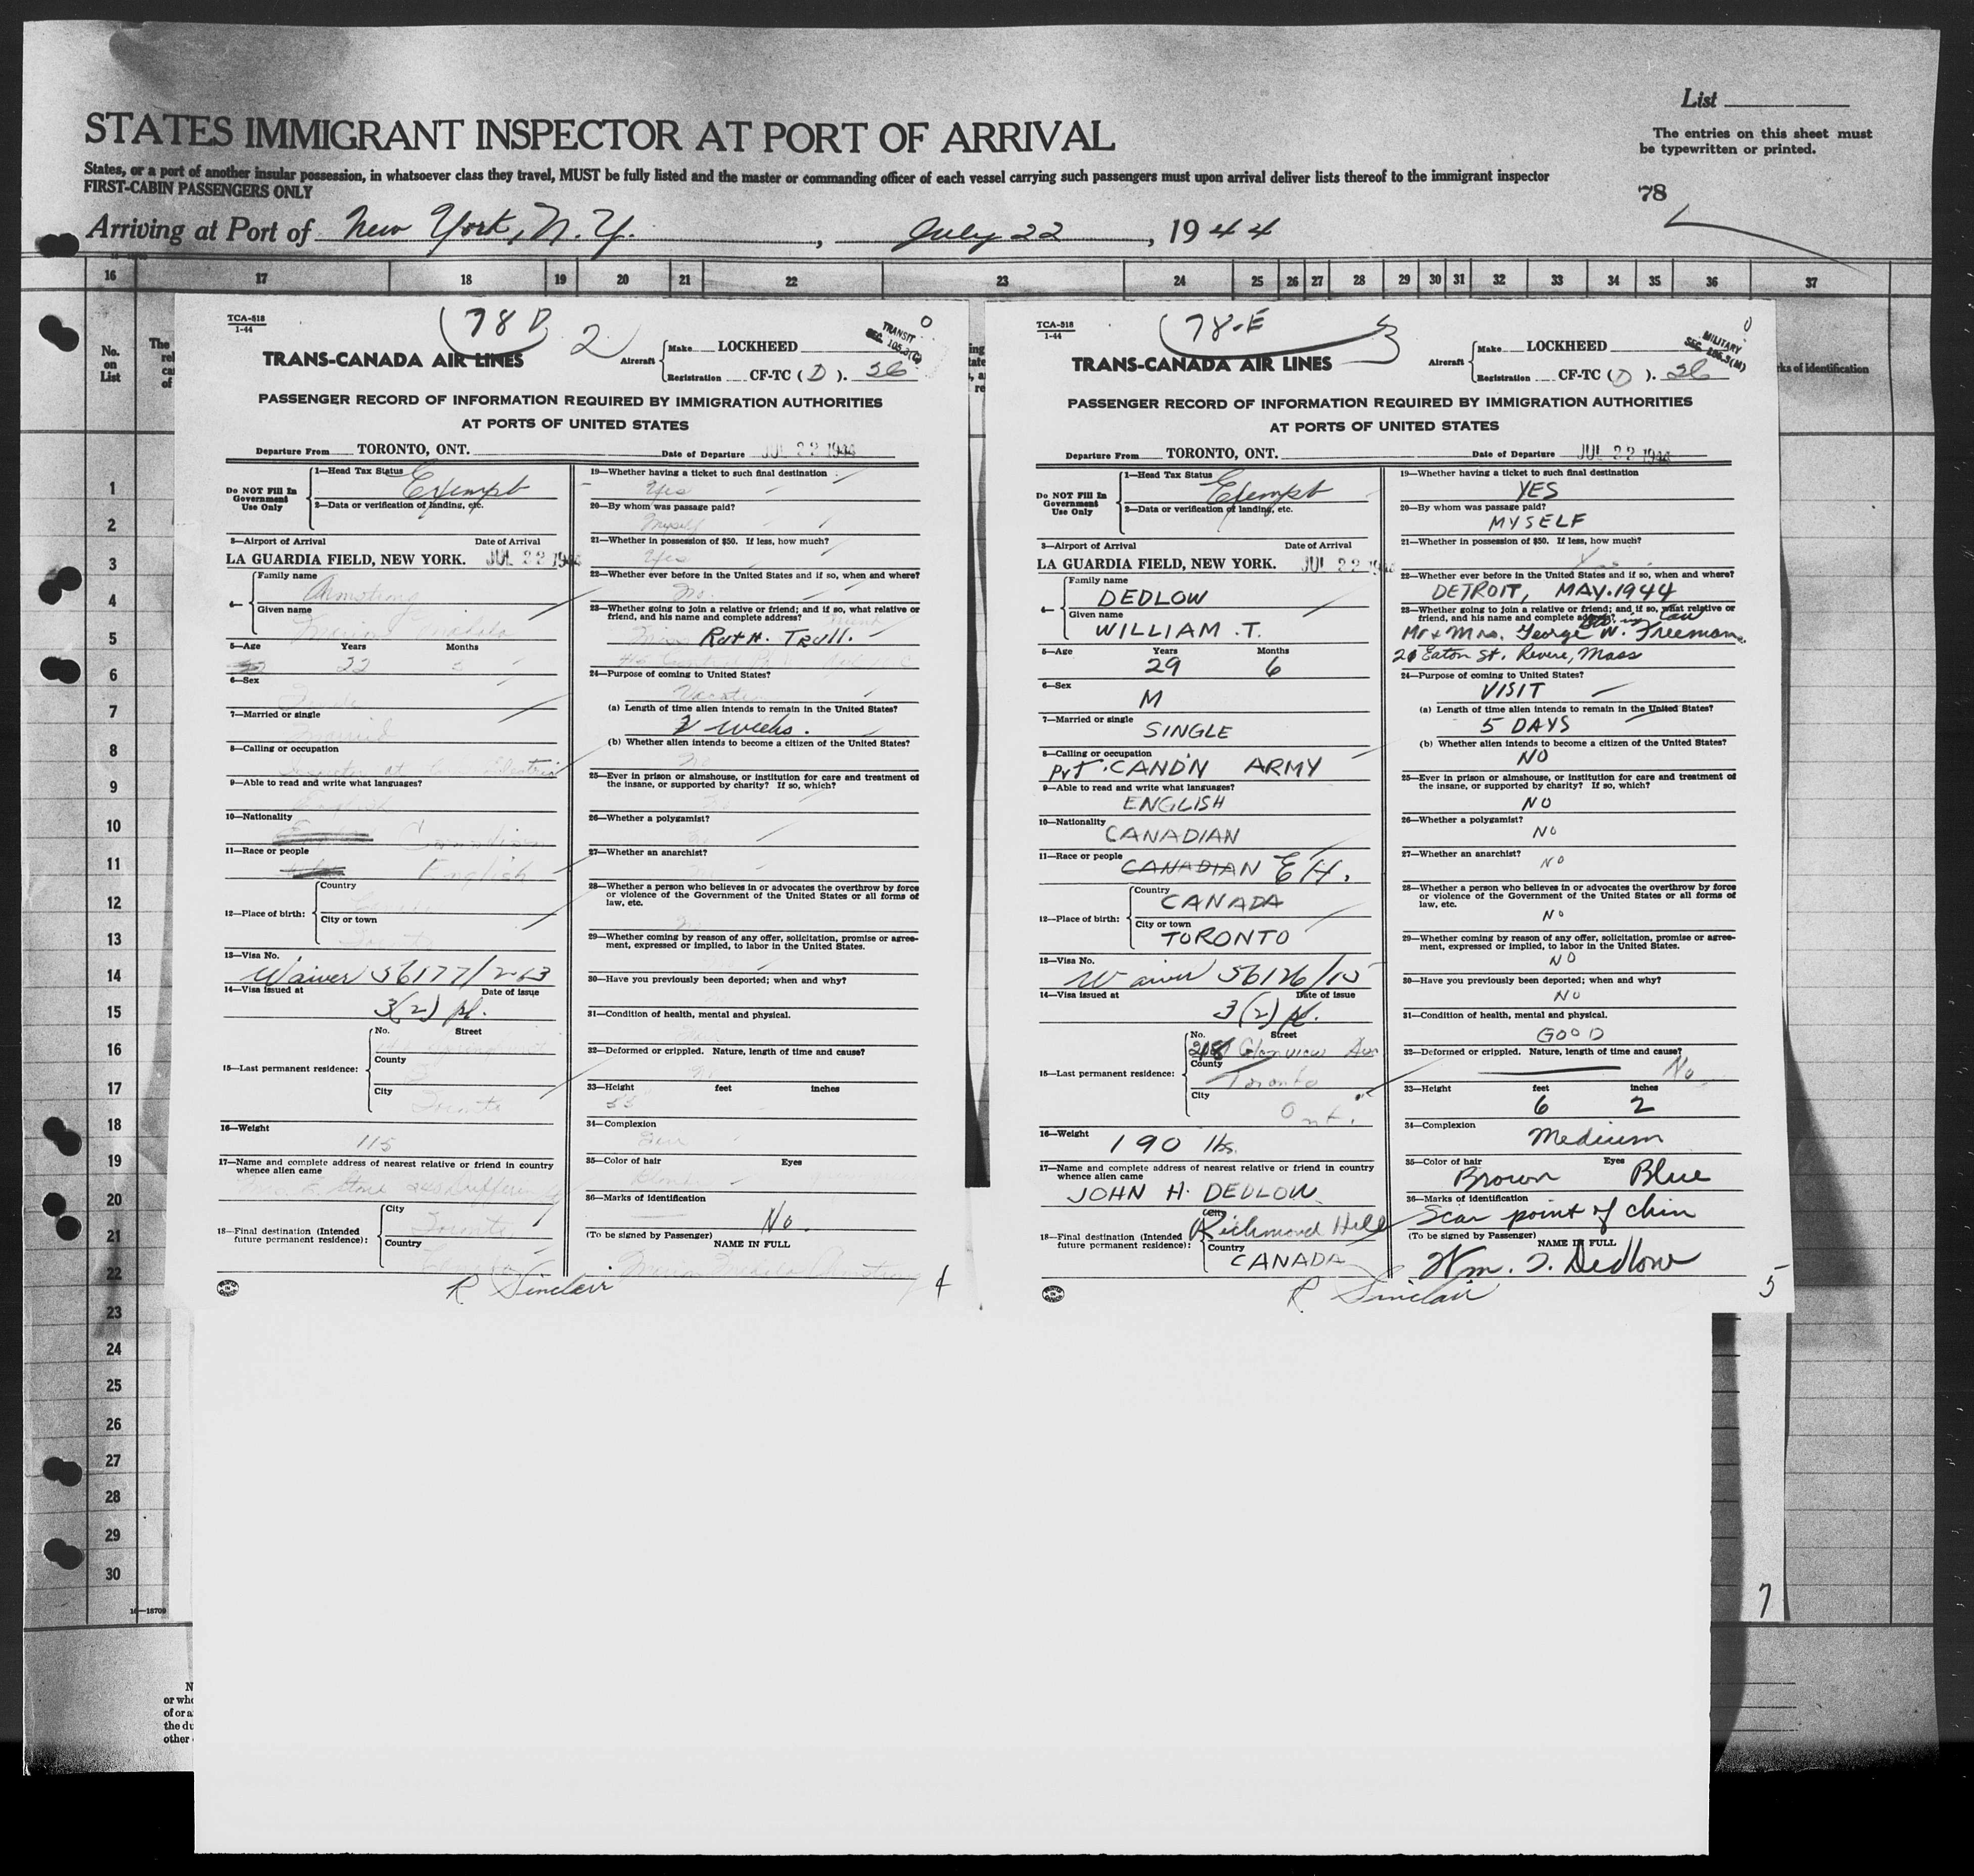 List
STATES IMMIGRANT INSPECTOR AT PORT OF ARRIVAL
The entries on this sheet must
be typewritten or printed.
States, or a port of another insular possession, in whatsoever class they travel, MUST be fully listed and the master or commanding officer of each vessel carrying such passengers must upon arrival deliver lists thereof to the immigrant inspector
FIRST-CABIN PASSENGERS ONLY
78
Arriving at Port of New York, N.Y., July 22, 1944
16 17 18 19 20 21 22 23 24 25 26 27 28 29 30 31 32 33 34 35 36 37
No.
on
List
1
2
3
4
5
6
7
8
9
10
11
12
13
14
15
16
17
18
19
20
21
22
23
24
25
26
27
28
29
30
TCA-518
1-44
78 D 2
TRANSIT
TRANS-CANADA AIR LINES
Aircraft
Make LOCKHEED
Registration CF-TC (D). 36
PASSENGER RECORD OF INFORMATION REQUIRED BY IMMIGRATION AUTHORITIES
AT PORTS OF UNITED STATES
Departure From TORONTO, ONT. Date of Departure JUL 22 1944
Do NOT Fill In
Government
Use Only
1—Head Tax Status Exempt
2—Data or verification of landing, etc.
3—Airport of Arrival Date of Arrival
LA GUARDIA FIELD, NEW YORK. JUL 22 1944
4—
Family name
Armstrong
Given name
5—Age Years Months
22
6—Sex
7—Married or single
Married
8—Calling or occupation
9—Able to read and write what languages?
English
10—Nationality
Canadian
11—Race or people
English
12—Place of birth:
Country
City or town
13—Visa No.
Waiver 56177/263
14—Visa issued at Date of issue
3(2) pl.
15—Last permanent residence:
No. Street
County
City
Toronto
16—Weight
115
17—Name and complete address of nearest relative or friend in country
whence alien came
18—Final destination (Intended
future permanent residence):
City
Toronto
Country
R Sinclair
19—Whether having a ticket to such final destination
Yes
20—By whom was passage paid?
Myself
21—Whether in possession of $50. If less, how much?
Yes
22—Whether ever before in the United States and if so, when and where?
No.
23—Whether going to join a relative or friend; and if so, what relative or
friend, and his name and complete address? Friend
Miss Ruth. Trull.
24—Purpose of coming to United States?
Vacation
(a) Length of time alien intends to remain in the United States?
2 weeks.
(b) Whether alien intends to become a citizen of the United States?
No
25—Ever in prison or almshouse, or institution for care and treatment of
the insane, or supported by charity? If so, which?
26—Whether a polygamist?
27—Whether an anarchist?
28—Whether a person who believes in or advocates the overthrow by force
or violence of the Government of the United States or all forms of
law, etc.
29—Whether coming by reason of any offer, solicitation, promise or agree-
ment, expressed or implied, to labor in the United States.
30—Have you previously been deported; when and why?
31—Condition of health, mental and physical.
32—Deformed or crippled. Nature, length of time and cause?
33—Height feet inches
34—Complexion
35—Color of hair Eyes
36—Marks of identification
No.
(To be signed by Passenger) NAME IN FULL
4
TCA-518
1-44
78-E 3
MILITARY
TRANS-CANADA AIR LINES
Aircraft
Make LOCKHEED
Registration CF-TC (D). 36
PASSENGER RECORD OF INFORMATION REQUIRED BY IMMIGRATION AUTHORITIES
AT PORTS OF UNITED STATES
Departure From TORONTO, ONT. Date of Departure JUL 22 1944
Do NOT Fill In
Government
Use Only
1—Head Tax Status Exempt
2—Data or verification of landing, etc.
3—Airport of Arrival Date of Arrival
LA GUARDIA FIELD, NEW YORK. JUL 22 1944
4—
Family name
DEDLOW
Given name
WILLIAM .T.
5—Age Years Months
29 6
6—Sex
M
7—Married or single
SINGLE
8—Calling or occupation
PVT. CAND'N ARMY
9—Able to read and write what languages?
ENGLISH
10—Nationality
CANADIAN
11—Race or people
CANADIAN
12—Place of birth:
Country
CANADA
City or town
TORONTO
13—Visa No.
Waiver 56126/15
14—Visa issued at Date of issue
3(2) pl.
15—Last permanent residence:
No. Street
Glenview Ave
County
Toronto
City
Ont.
16—Weight
190 lbs.
17—Name and complete address of nearest relative or friend in country
whence alien came
JOHN H. DEDLOW
18—Final destination (Intended
future permanent residence):
City
Richmond Hill
Country
CANADA
R Sinclair
19—Whether having a ticket to such final destination
YES
20—By whom was passage paid?
MYSELF
21—Whether in possession of $50. If less, how much?
Yes
22—Whether ever before in the United States and if so, when and where?
DETROIT, MAY. 1944
23—Whether going to join a relative or friend; and if so, what relative or
friend, and his name and complete address? in law
Mr & Mrs. George W. Freeman.
20 Eaton St. Revere, Mass
24—Purpose of coming to United States?
VISIT
(a) Length of time alien intends to remain in the United States?
5 DAYS
(b) Whether alien intends to become a citizen of the United States?
NO
25—Ever in prison or almshouse, or institution for care and treatment of
the insane, or supported by charity? If so, which?
NO
26—Whether a polygamist?
NO
27—Whether an anarchist?
NO
28—Whether a person who believes in or advocates the overthrow by force
or violence of the Government of the United States or all forms of
law, etc.
NO
29—Whether coming by reason of any offer, solicitation, promise or agree-
ment, expressed or implied, to labor in the United States.
NO
30—Have you previously been deported; when and why?
NO
31—Condition of health, mental and physical.
GOOD
32—Deformed or crippled. Nature, length of time and cause?
No
33—Height feet inches
6 2
34—Complexion
Medium
35—Color of hair Eyes
Brown Blue
36—Marks of identification
Scar point of chin
(To be signed by Passenger) NAME IN FULL
Wm. T. Dedlow
5
7
rks of identification
16—18709
or who
of or a
the du
other